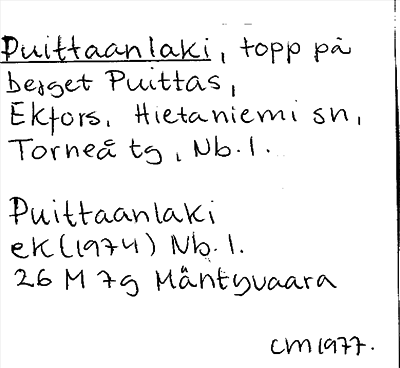 Puittaanlaki, topp på
berget Puittas,
Ekfors, Hietaniemi sn,
Torneå tg, Nb.l.
Puittaanlaki
ek (1974) Nb.l.
26 M 7g Mäntyvaara
CM 1977.